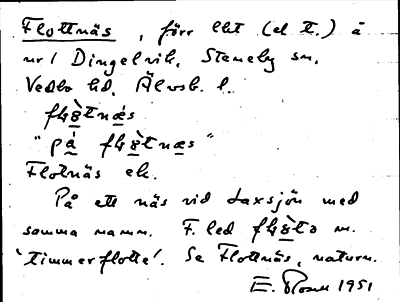 Flottnäs, förr lht (el t.) å
nr 1 Dingelvik, Steneby sn,
Vedbo hd, Älvsb. l.
flå̀tnä́s
"på flå̀tnäs"
Flotnäs ek.
På ett näs vid Laxsjön med
samma namn. F. led flå̀ta m.
'timmerflotte'. Se Flottnäs, naturn.
E. 1951